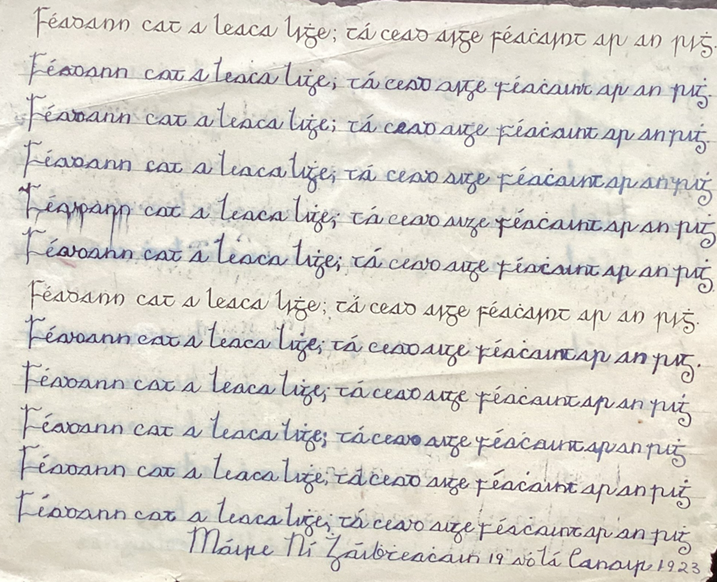 Féadann cat a leaca liġe; tá cead aige féaċaint ar an riġ.
Féadann cat a leaca liġe; tá cead aige féaċaint ar an riġ.
Féadann cat a leaca liġe; tá cead aige féaċaint ar an riġ.
Féadann cat a leaca liġe; tá cead aige féaċaint ar an riġ
Féadann cat a leaca liġe; tá cead aige féaċaint ar an riġ
Féadann cat a leaca liġe; tá cead aige féaċaint ar an riġ
Féadann cat a leaca liġe; tá cead aige féaċaint ar an riġ.
Féadann cat a leaca liġe; tá cead aige féaċaint ar an riġ.
Féadann cat a leaca liġe; tá cead aige féaċaint ar an riġ
Féadann cat a leaca liġe; tá cead aige féaċaint ar an riġ
Féadann cat a leaca liġe; tá cead aige féaċaint ar an riġ
Féadann cat a leaca liġe; tá cead aige féaċaint ar an riġ
Máire Ní 19 ad lá Eanair 1923